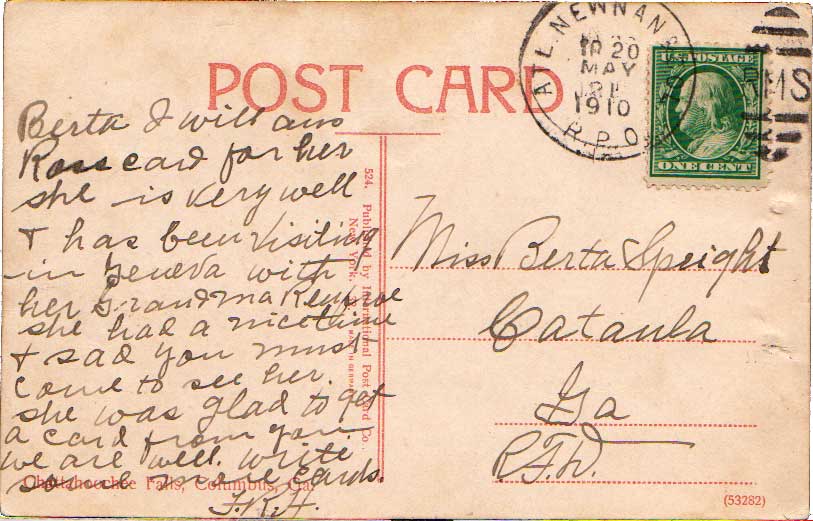 POST CARD
ATL. NEWNAN
TR 20
MAY
1910
R.P.O.
RMS
U.S. POSTAGE
ONE CENT
Berta I will ans
Rosse card for her
she is very well
& has been visiting
in Geneva with
her Grandma
she had a nice time
& sad you must
come to see her.
she was glad to get
a card from you
we are well. write
some more cards.
F.R.H.
524. Published by International Post Card Co.
New York,
Miss Berta Speight
Cataula
Ga
R.F.D.
Chattahoochee Falls, Columbus, Ga.
(53282)